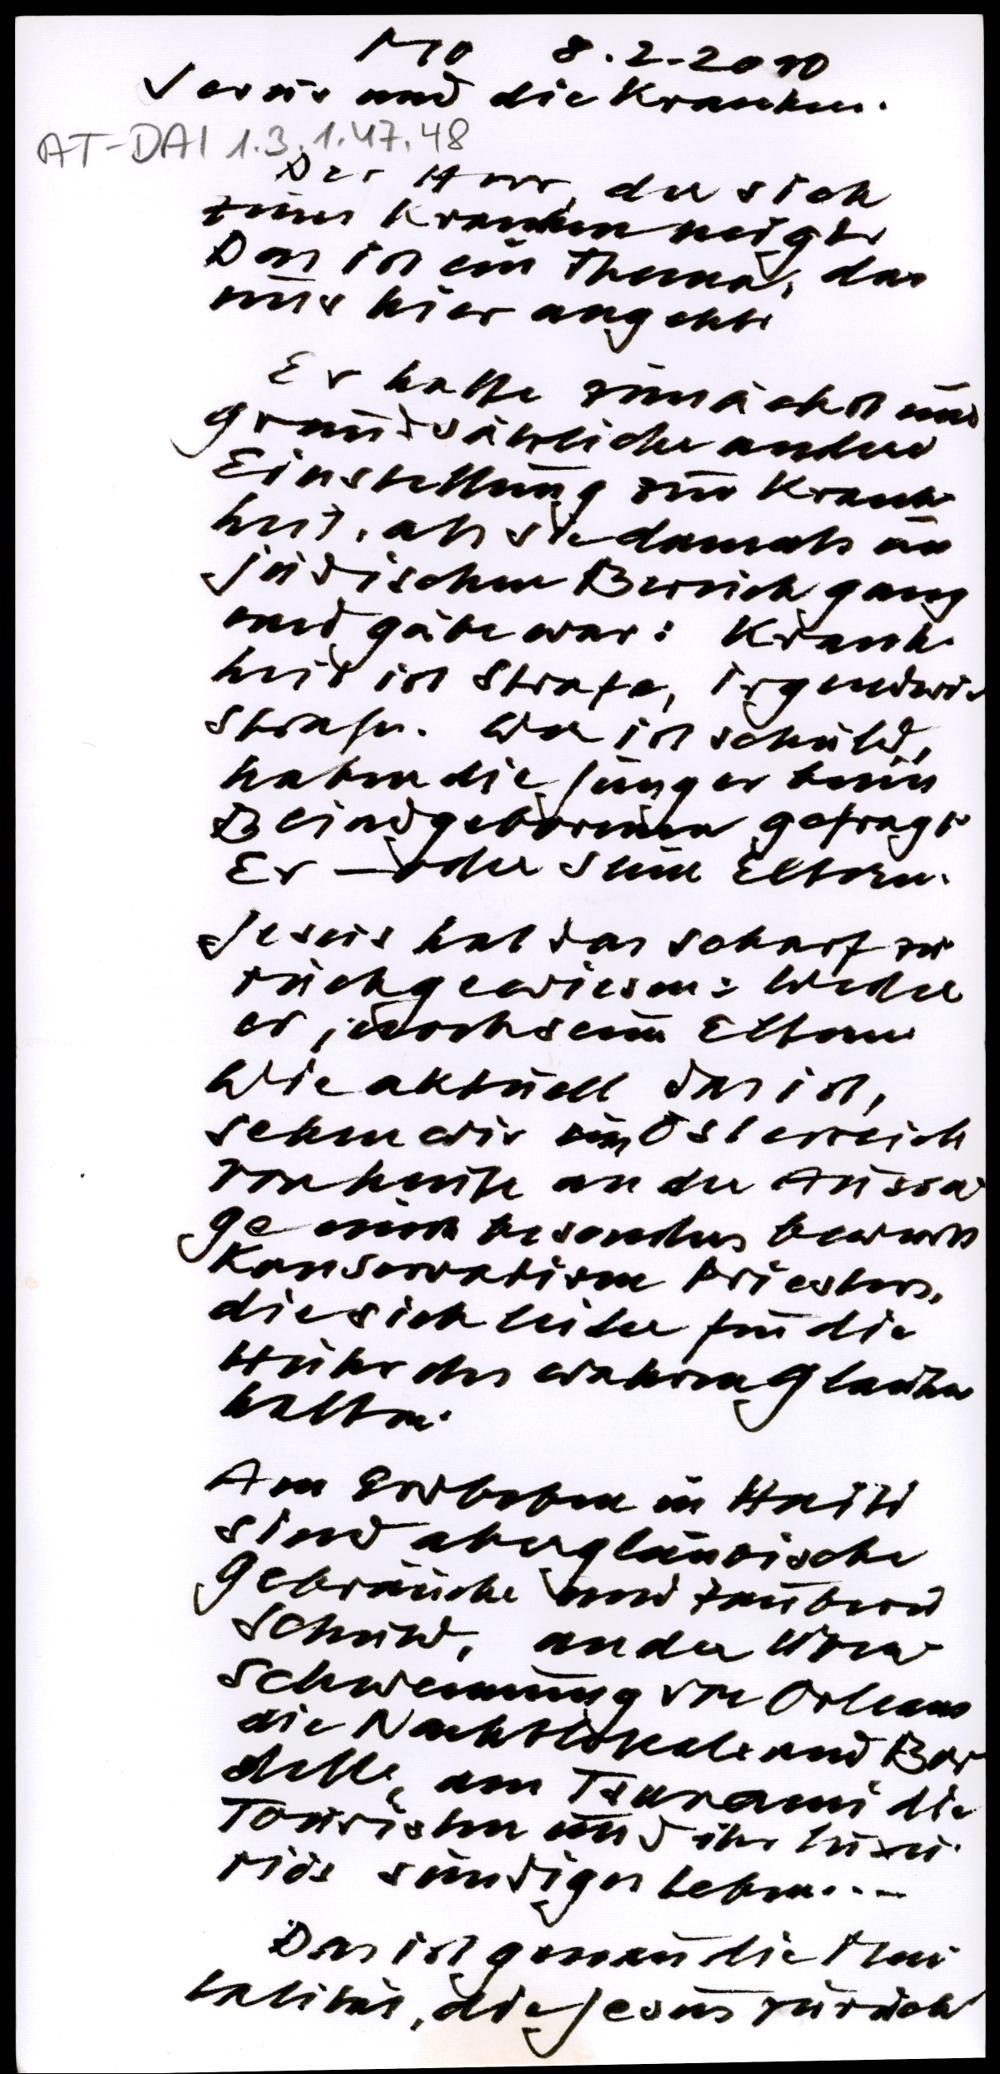 Mo 8.2.2010
Jesus und die Kranken.
AT-DAI 1.3.1.47.48
Der Herr, der sich
zum Kranken neigt.
Das ist ein Thema, das
uns hier angeht.
Er hatte zunächst eine
grundsätzliche andere
Einstellung zur Krank
heit, als sie damals im
jüdischen Bereich gang
und gäbe war: Krank-
heit ist Strafe, irgendwie
Strafe. Wer ist schuld,
haben die Jünger beim
Blindgeborenen gefragt
Er – oder seine Eltern.
Jesus hat das scharf zu
rückgewiesen: Weder
er, noch seine Eltern
Wie aktuell das ist,
sehen wir in Österreich
von heute an der Aussa
ge eines besonders bewusst
Konservativen Priesters,
die sich leider für die
Hüter des wahren Glaubens
halten.
Am Erdbeben in Haiti
sind abergläubische
Gebräuche und Zauberei
Schuld, an der Über
schwemmung von Orleans
die Nachtlokale und Bor
delle, am Tsunami die
Touristen und ihr luxu
riös sündiges Leben...
Das ist genau die Men
talität, die Jesus zurück